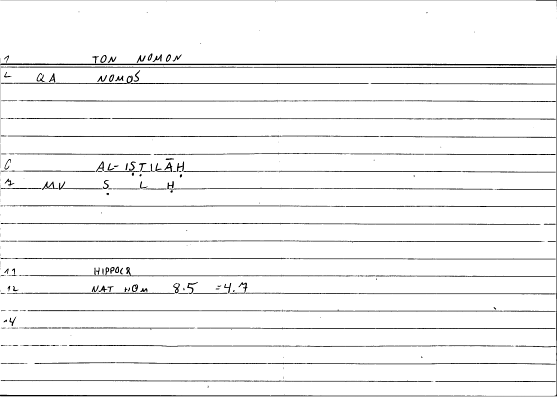 1 TON NOMON
L QA NOMOS
C AL-IṢṬILĀḤ
2 MV Ṣ L Ḥ
11 HIPPOCR
12 NAT HOM 8.5 =4.7
14